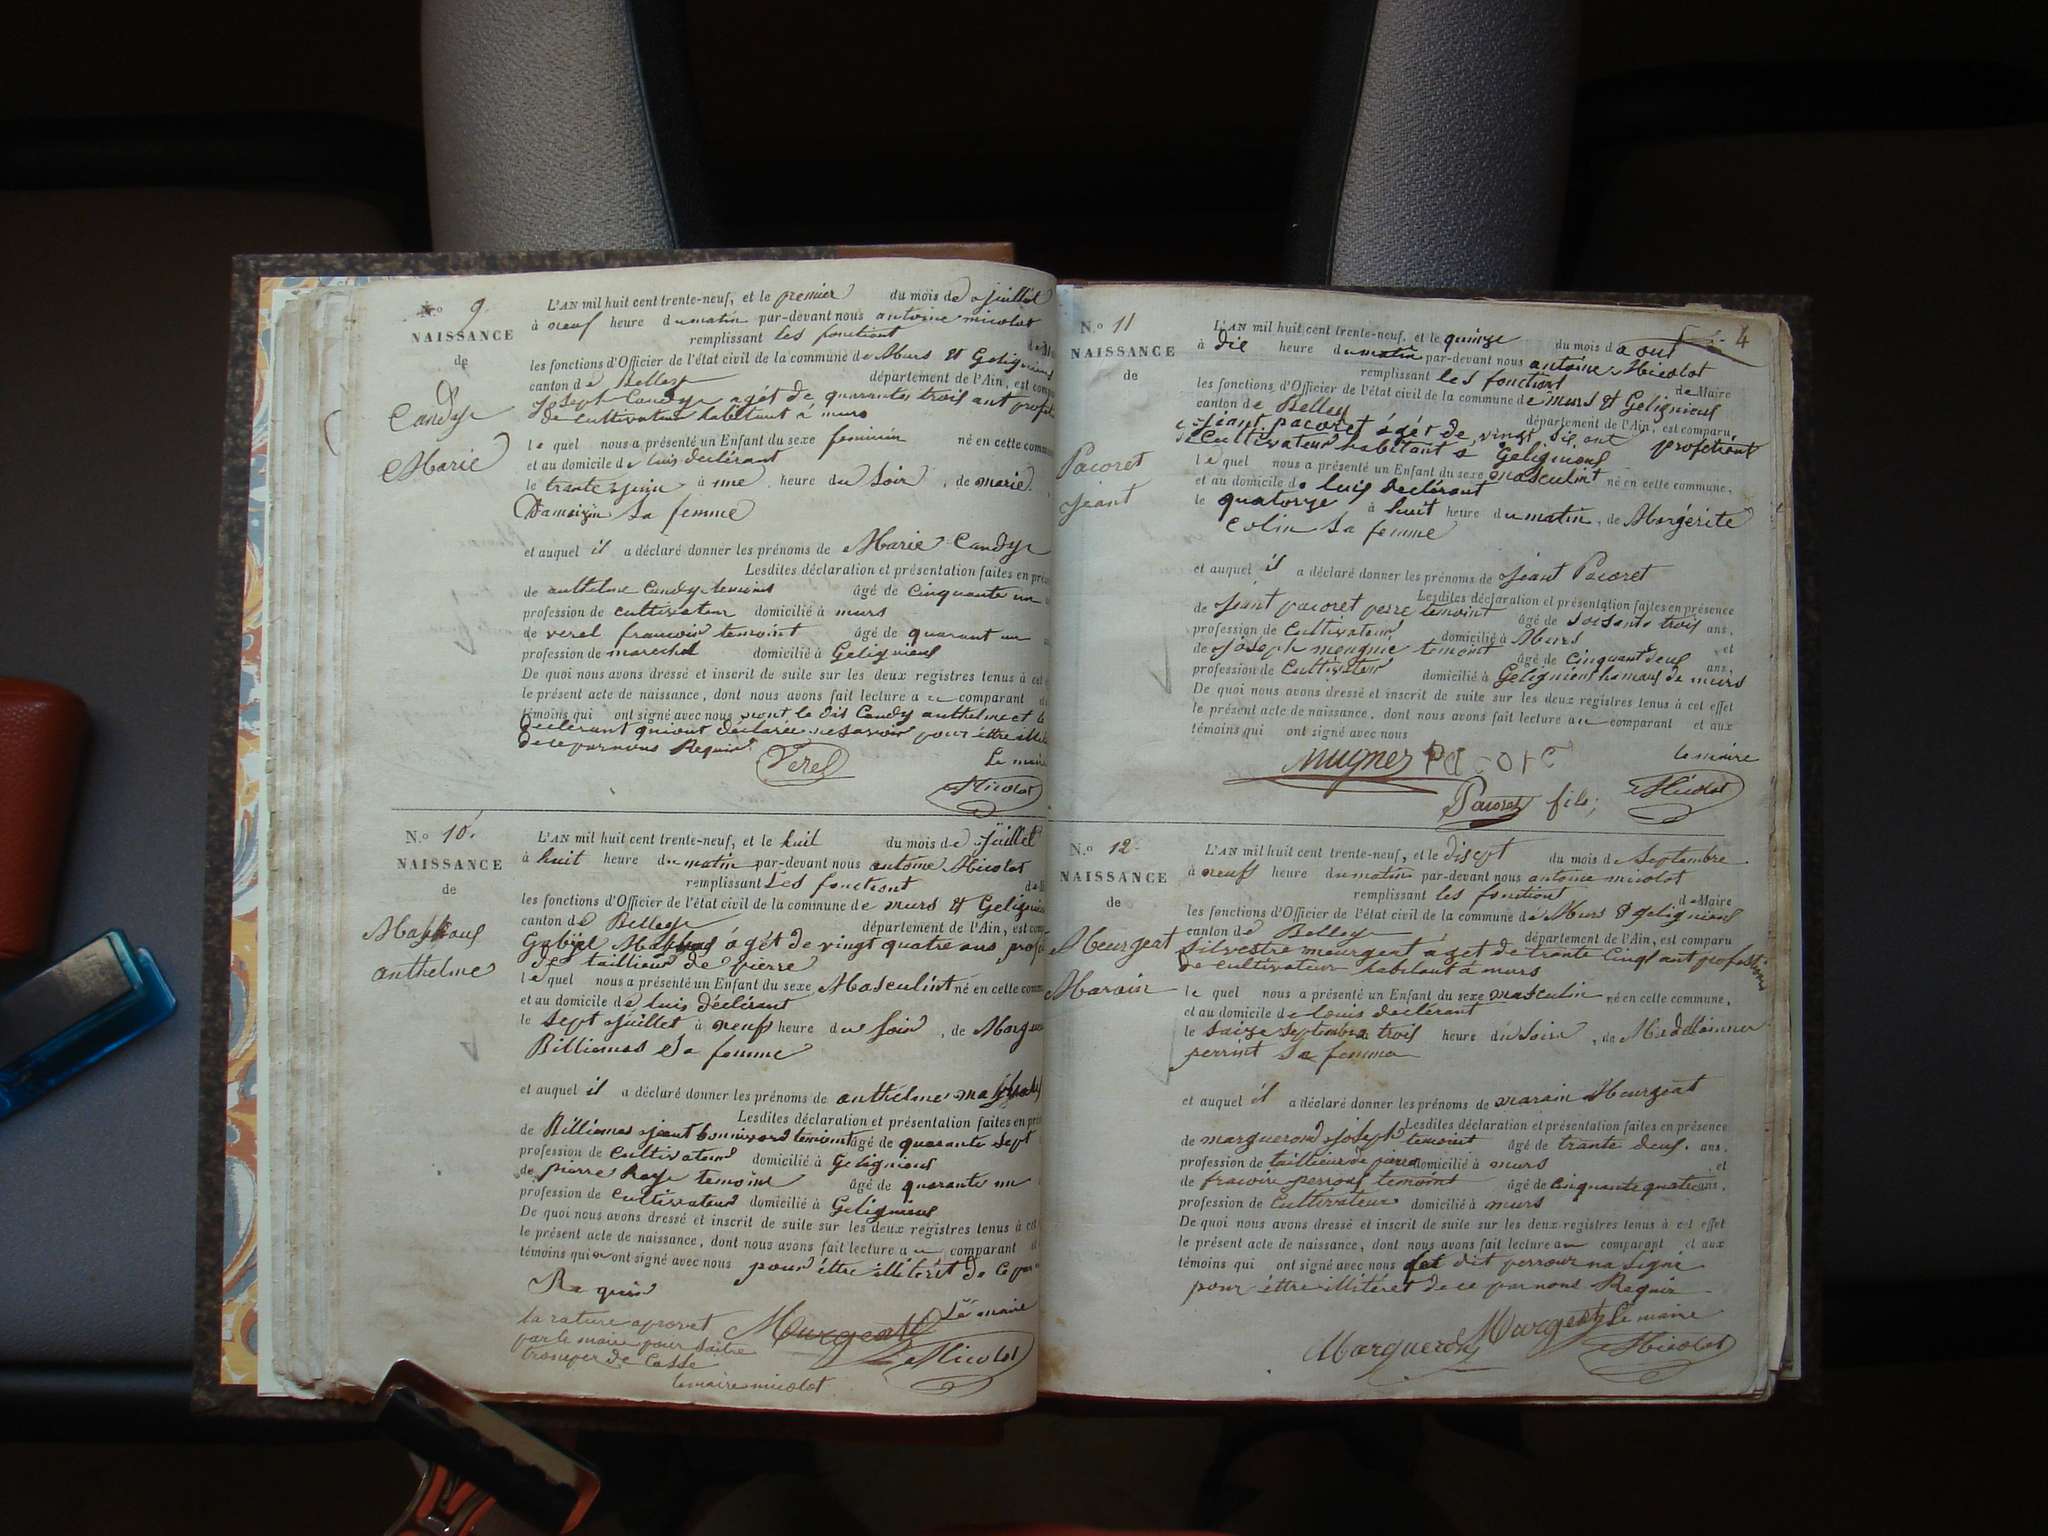 N.o 9
NAISSANCE
de
Candy
Marie
L'AN mil huit cent trente-neuf, et le premier du mois de juillet
à neuf heure du matin par-devant nous antoine micolot
remplissant les fonctiont
les fonctions d'Officier de l'état civil de la commune de Murs et Gelignieux
canton de Belley département de l'Ain, est compa
Joseph Candy agét de quarante trois ant profe
de cultivateur habitant à murs
le quel nous a présenté un Enfant du sexe feminin né en cette comm
et au domicile de luis declérant
le trante juin à une heure du soir, de marie
Damaizin sa femme
et auquel il a déclaré donner les prénoms de Marie Candy
Lesdites déclaration et présentation faites en pré
de anthelme Candy temoins âgé de cinquante un
profession de cultivateur domicilié à murs
de verel francois temoint âgé de quarant un
profession de marechal domicilié à Gelignieus
De quoi nous avons dressé et inscrit de suite sur les deux registres tenus à cet e
le présent acte de naissance, dont nous avons fait lecture au comparant
témoins qui ont signé avec nous le dit Candy anthelme et le
déclérant qui ont déclarée ne savoir pour éttre
de ce par nous Requis
Verel
Le maire
Micolot
N.o 10.
NAISSANCE
de
anthelme
L'AN mil huit cent trente-neuf, et le huit du mois de Juillet
à huit heure du matin par-devant nous antoine Micolot
remplissant Les fonctiont
les fonctions d'Officier de l'état civil de la commune de murs et Gelignieu
canton de Belley département de l'Ain, est com
agét de vingt quatre ans prof
de taillieur de pierre
le quel nous a présenté un Enfant du sexe Masculint né en cette comm
et au domicile de luis déclérant
le sept Juillet à neuf heure du soir, de Margue
Billiemas sa femme
et auquel il a déclaré donner les prénoms de anthelme
Lesdites déclaration et présentation faites en pré
de Billiemas jeant bonnivard temoint âgé de quarante sept
profession de cultivateur domicilié à Gelignieus
de pierre Roy temoint âgé de quarante un
profession de cultivateur domicilié à Gelignieus
De quoi nous avons dressé et inscrit de suite sur les deux registres tenus à cet
le présent acte de naissance, dont nous avons fait lecture au comparant et
témoins qui ont signé avec nous pour éttre illitérét de ce par
Requis
la rature aprovet
par le maire pour saitre
tromper de Casse
le maire micolot
Mourgeat
Le maire
Micolot
4
N.o 11
NAISSANCE
de
Pacoret
jeant
L'AN mil huit cent trente-neuf, et le quinze du mois d aout
à die heure du matin par-devant nous antoine Micolot
remplissant les fonctiont de Maire
les fonctions d'Officier de l'état civil de la commune de murs et Gelignieus
canton de Belley département de l'Ain, est comparu
jeant pacoret agét de vingt sie ant profetiont
de Cultivateur habitant a Gelignieus
le quel nous a présenté un Enfant du sexe masculint né en cette commune,
et au domicile de luis declérant
le quatorze à huit heure du matin, de Margérite
Colin sa femme
et auquel il a déclaré donner les prénoms de jeant Pacoret
Lesdites déclaration et présentation faites en présence
de jeant pacoret perre temoint âgé de soisante trois ans,
profession de Cultivateur domicilié à Murs et
de joseph temoint âgé de cinquant deus ans,
profession de Cultivateur domicilié à Gelignieus hamaus de murs
De quoi nous avons dressé et inscrit de suite sur les deux registres tenus à cet effet
le présent acte de naissance, dont nous avons fait lecture au comparant et aux
témoins qui ont signé avec nous
mugner
le maire
Pacoret fils;
Micolot
N.o 12
NAISSANCE
de
Meurgeat
Marain
L'AN mil huit cent trente-neuf, et le disept du mois de Septembre
à neuf heure du matin par-devant nous antoine micolot
remplissant les fonctiont de Maire
les fonctions d'Officier de l'état civil de la commune de Murs et gelignieus
canton de Belley département de l'Ain, est comparu
Silvestre meurgeat agét de trante cinq ant profession
de cultivateur habitant à murs
le quel nous a présenté un Enfant du sexe masculin né en cette commune,
et au domicile de louis declérant
le saize Septembre trois heure du soir, de
perrint sa femme
et auquel il a déclaré donner les prénoms de marain Meurgeat
Lesdites déclaration et présentation faites en présence
de marguerond joseph temoint âgé de trante deus. ans,
profession de taillieur de pierre domicilié à murs et
de temoint âgé de cinquante quatre ans,
profession de Cultivateur domicilié à murs
De quoi nous avons dressé et inscrit de suite sur les deux registres tenus à cet effet
le présent acte de naissance, dont nous avons fait lecture au comparant et aux
témoins qui ont signé avec nous dit perrour na signé
pour éttre illiterét de ce par nous Requis
Marguerond
Mourgeat
Le maire
Micolot